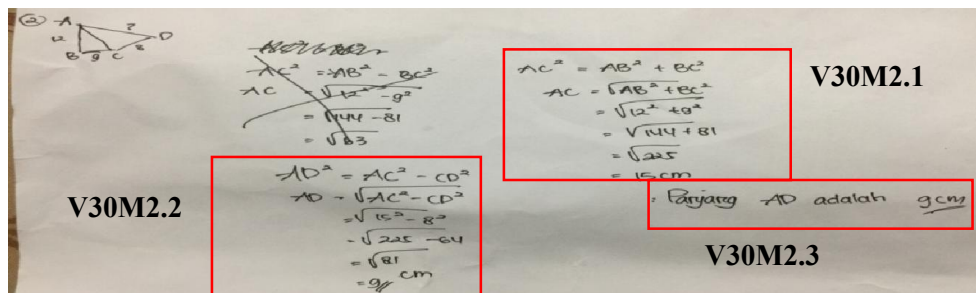 ②
A
?
12
D
B 9 C 8
AC² = AB² - BC²
AC = √12² - 9²
= √144 - 81
= √63
AC² = AB² + BC²
AC = √AB² + BC²
= √12² + 9²
= √144 + 81
= √225
= 15 cm
V30M2.1
AD² = AC² - CD²
AD = √AC² - CD²
= √15² - 8²
= √225 - 64
= √81
= 9 cm
V30M2.2
Panjang AD adalah 9 cm
V30M2.3